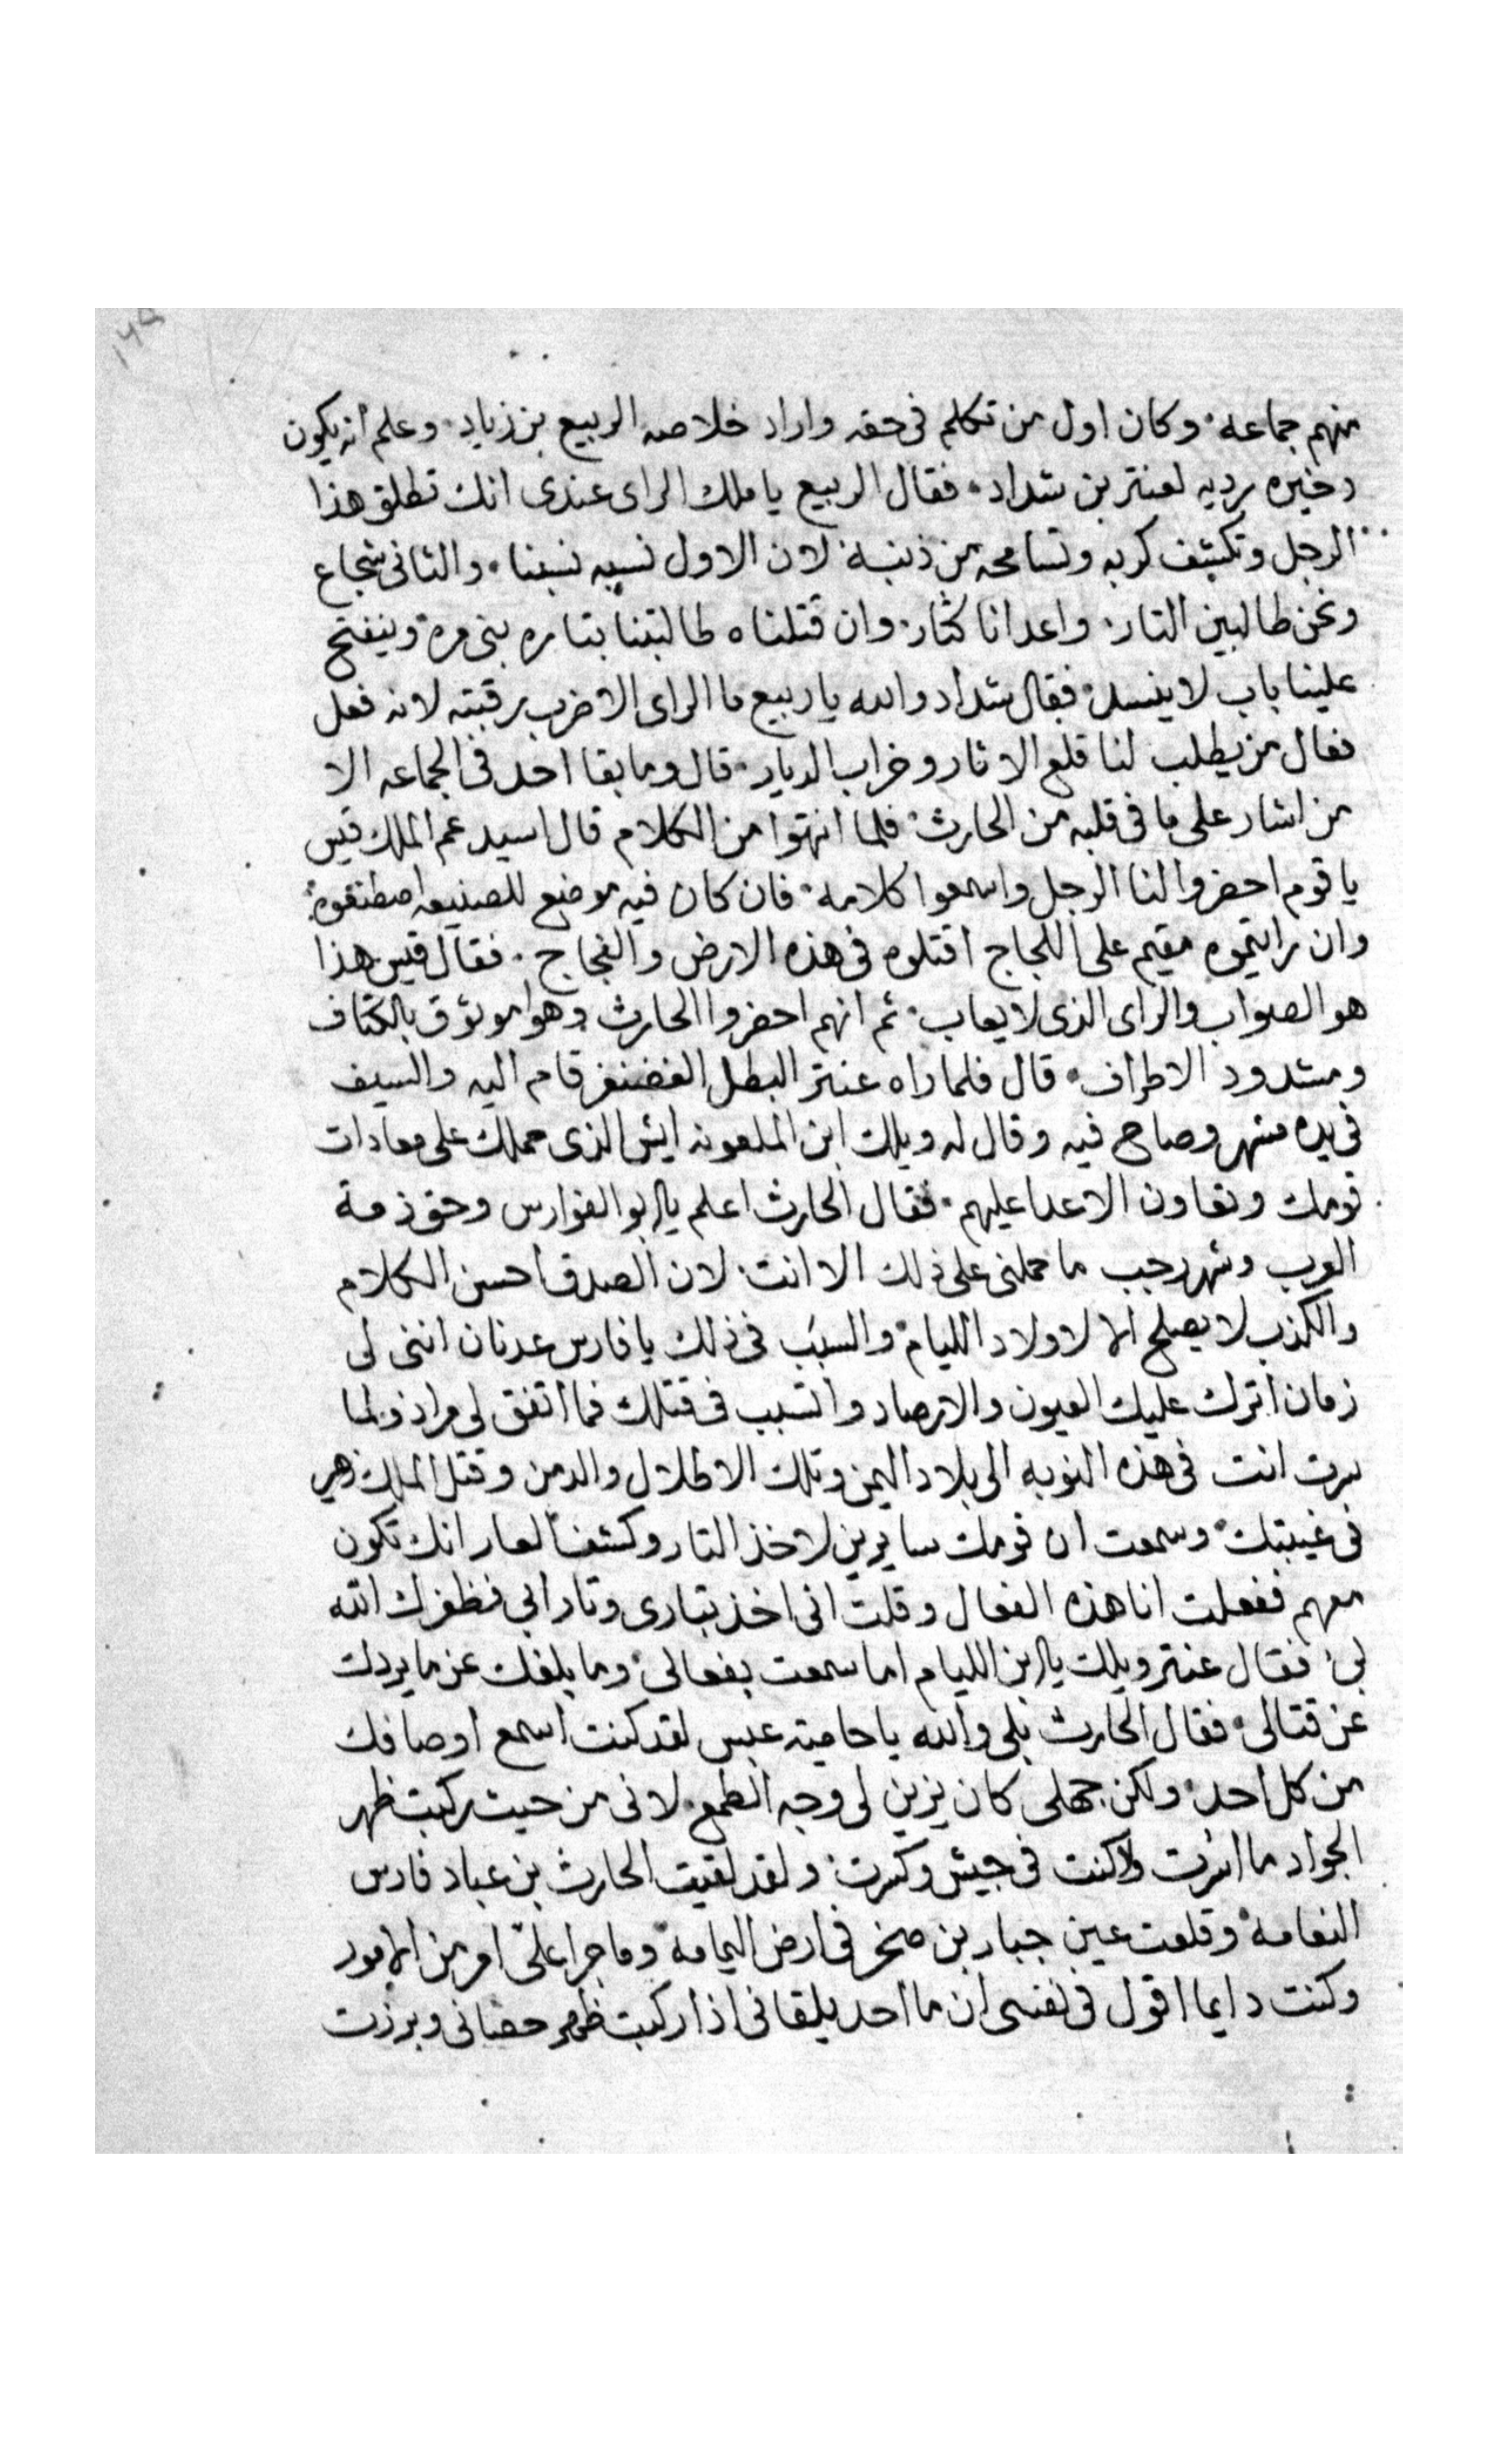 ١٤٩
منهم جماعه وكان اول من تكلم في حقه واراد خلاصه الربيع بن زياد وعلم انه يكون
دخيره رديه لعنتر بن شداد فقال الربيع يا ملك الراى عندى انك تطلق هذا
الرجل وتكشف كربه وتسامحه من ذنبه لان الاول نسبه نسبنا والثانى شجاع
ونحن طالبين التار واعدانا كثار وان قتلناه طالبتنا بتاره بنى مره وينفتح
علينا باب لا ينسد فقال شداد والله يا ربيع ما الراى الا ضرب رقبته لانه فعل
فعال من يطلب لنا قلع الاثار وخراب الديار قال وما بقا احد فى الجماعه الا
من اشار على ما فى قلبه من الحارث فلما انتهوا من الكلام قال اسيد عم الملك قيس
يا قوم احضروا لنا الرجل واسمعوا كلامه فان كان فيه موضع للصنيعه اصطنعوه
وان رايتموه مقيم على اللجاج اقتلوه فى هذه الارض والفجاج فقال قيس هذا
هو الصواب والراى الذى لا يعاب ثم انهم احضروا الحارث وهو موثوق بالكتاف
ومشدود الاطراف قال فلما راه عنتر البطل الغضنفر قام اليه والسيف
فى يده مشهر وصاح فيه وقال له ويلك ابن الملعونه ايش الذى حملك على معادات
قومك وتعاون الاعدا عليهم فقال الحارث اعلم يا ابو الفوارس وحق ذمة
العرب وشهر رجب ما حملنى على ذلك الا انت لان الصدق احسن الكلام
والكذب لا يصلح الا لاولاد الليام والسبب فى ذلك يا فارس عدنان اننى لى
زمان اترك عليك العيون والارصاد واتسبب فى قتلك فما اتفق لى مراد ولما
سرت انت فى هذه النوبه الى بلاد اليمن وتلك الاطلال والدمن وقتل الملك زهير
فى غيبتك وسمعت ان قومك سايرين لاخذ التار وكشف العار انك تكون
معهم ففعلت انا هذه الفعال وقلت انى اخذ بتارى وتار ابي فظفرك الله
بى فقال عنتر ويلك يا ابن الليام اما سمعت بفعالى وما بلغك عن ما يردك
عن قتالى فقال الحارث بلى والله يا حامية عبس لقد كنت اسمع اوصافك
من كل احد ولكن جهلى كان يزين لى وجه الطمع لانى من حيث ركبت ظهر
الجواد ما اسرت ولا كنت فى جيش وكسرت ولقد لقيت الحارث بن عباد فارس
النعامة وقلعت عين جبار بن صخر فى ارض اليمامة وما جرا علىّ امر من الامور
وكنت دايما اقول فى نفسى ان ما احد يلقانى اذا ركبت ظهر حصانى وبرزت